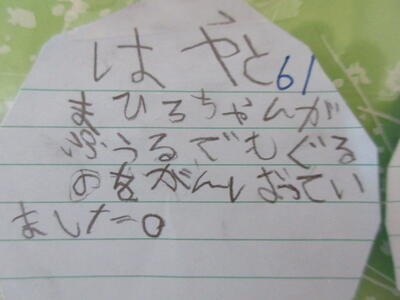 はやと 61
まひろちゃんが
ぷうるでもぐる
のをがんばってい
ました。